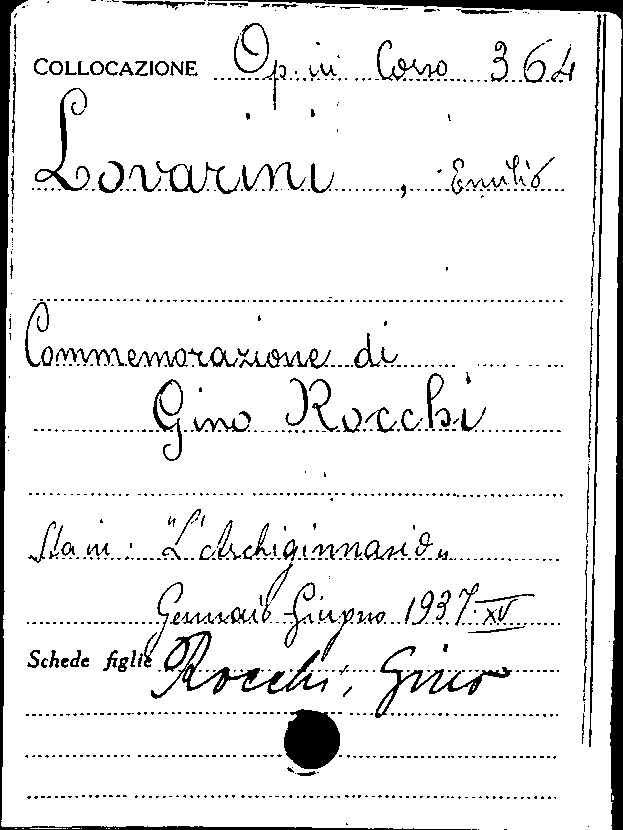 COLLOCAZIONE Op. in Corso 364
Lovarini, Emilio
Commemorazione di
Gino Rocchi
Sta in: "L'Archiginnasio"
Gennaio-Giugno 1937.XV
Schede figlie Rocchi, Gino